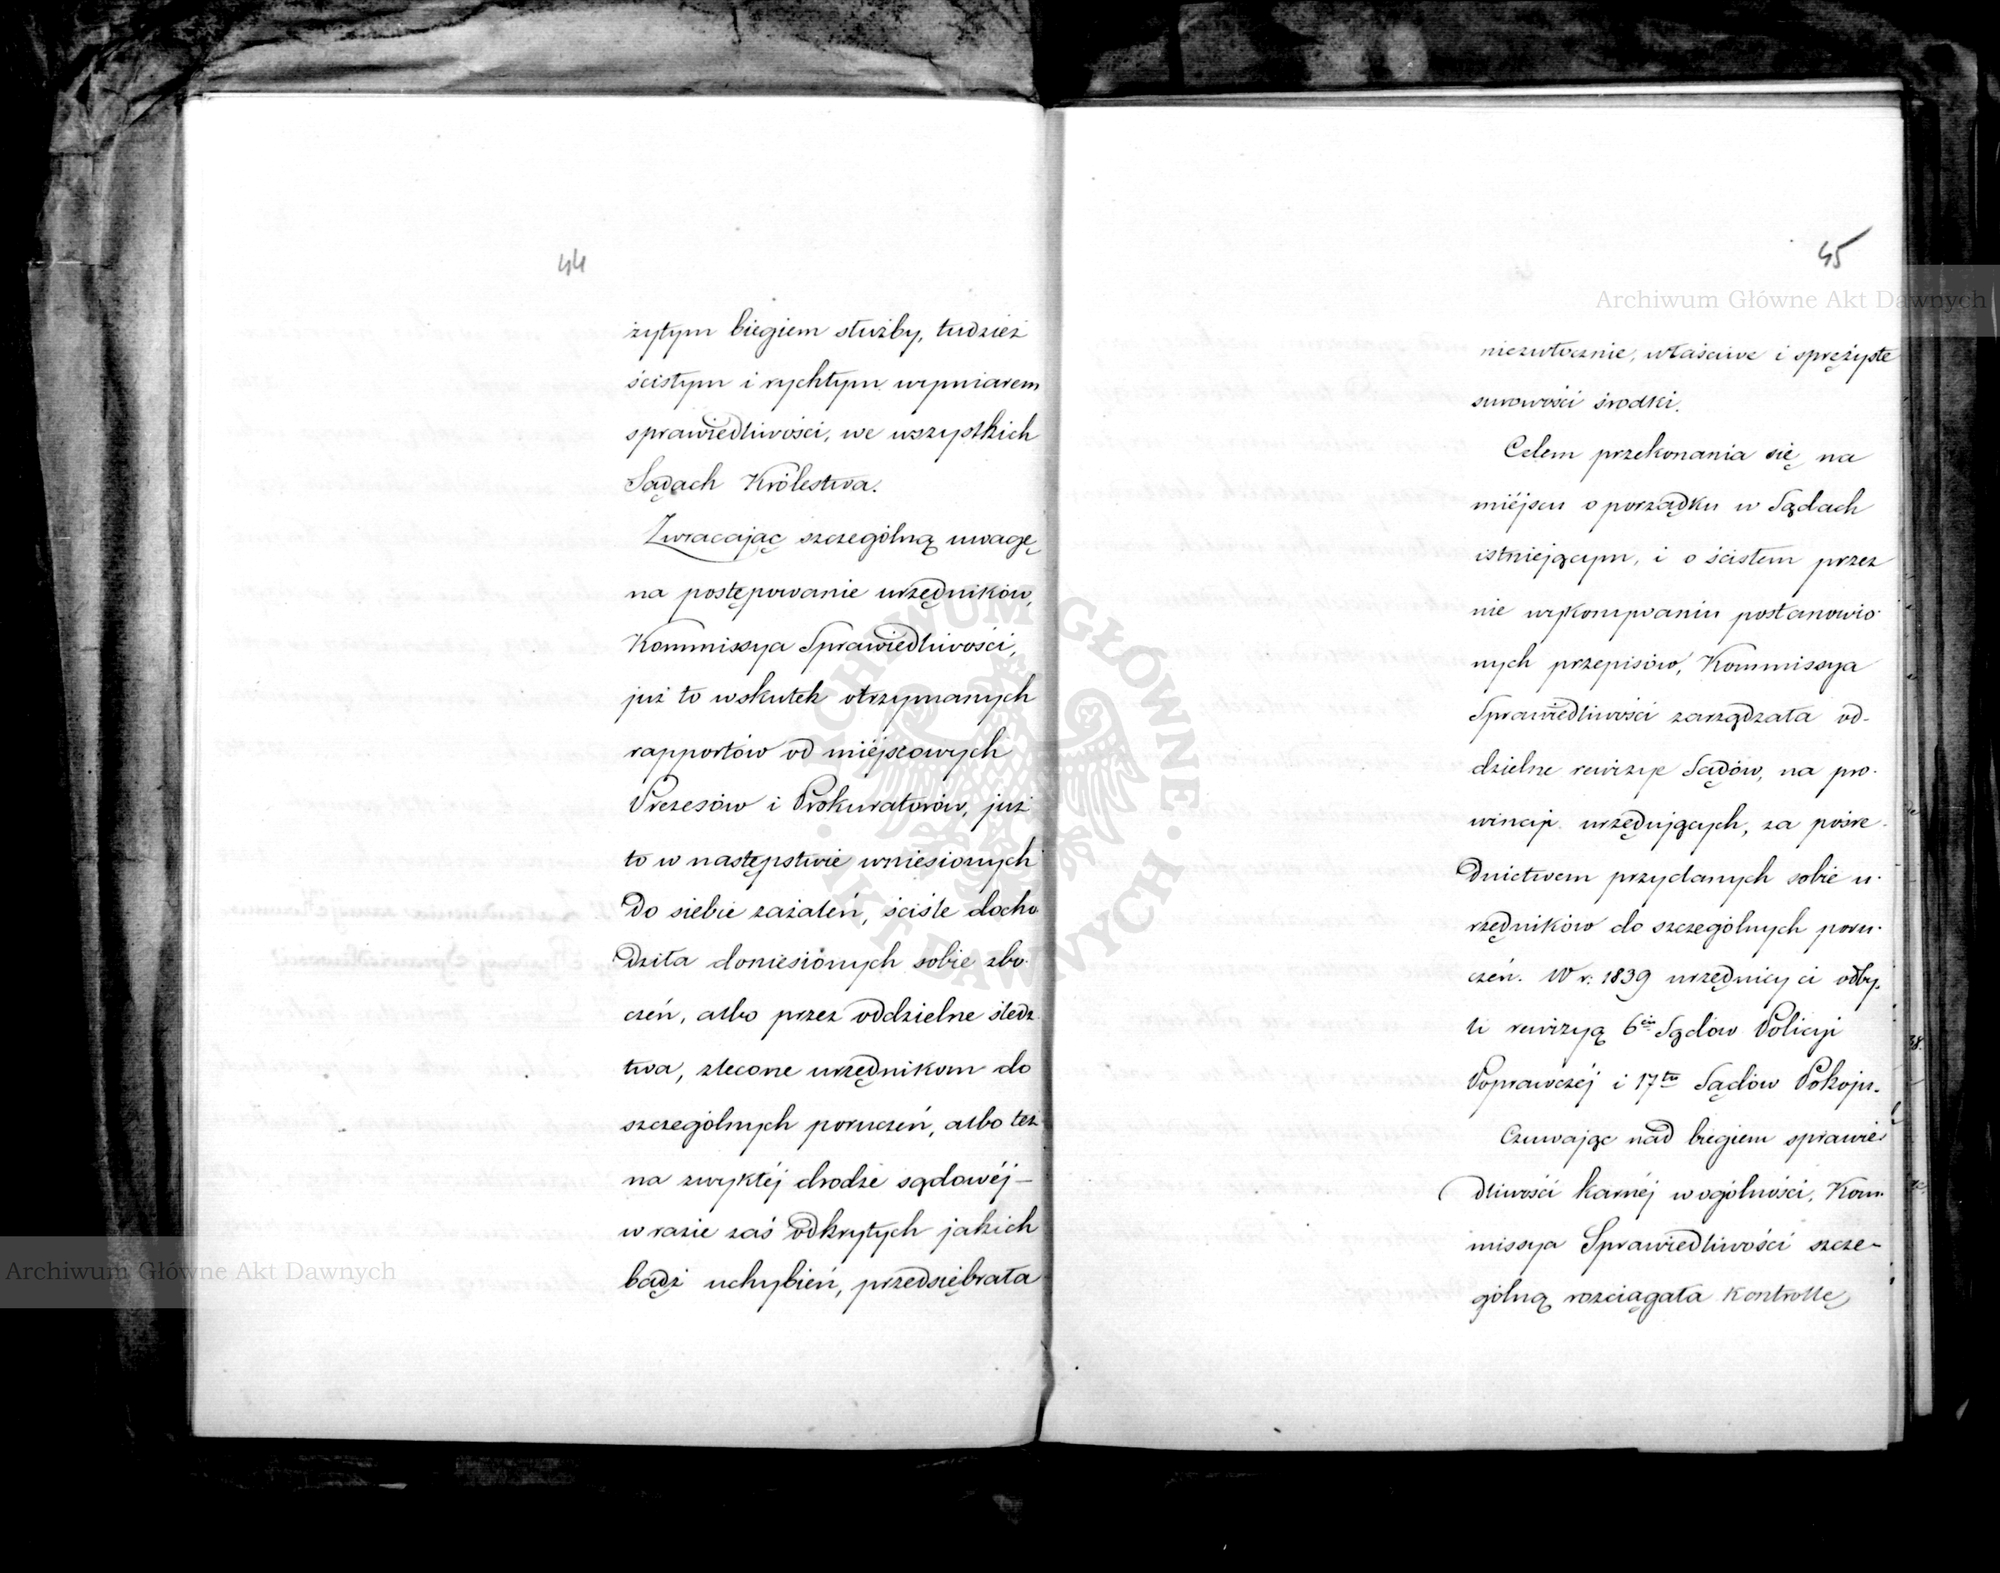 44
żytym biegiem służby, tudzież
ścisłym i rychłym wymiarem
sprawiedliwości, we wszystkich
Sądach Królestwa.
Zwracając szczególną uwagę
na postępowanie urzędników,
Kommissya Sprawiedliwości,
już to wskutek otrzymanych
rapportów od miéjscowych
Prezesów i Prokuratorów, już
to w następstwie wniesionych
do siebie zażaleń, ściśle docho
dziła doniesionych sobie zbo-
czeń, albo przez oddzielne śledz
twa, zlecone urzędnikom do
szczególnych poruczeń, albo też
na zwykłéj drodze sądowéj —
w razie zaś odkrytych jakich
bądź uchybień, przedsiębrała
45
niezwłocznie, właściwe i sprężyste
surowości środki.
Celem przekonania się na
miéjscu o porządku w Sądach
istniejącym, i o ścisłem przez
nie wykonywaniu postanowio-
nych przepisów, Kommissya
Sprawiedliwości zarządzała od-
dzielne rewizye Sądów, na pro-
wincyi urzędujących, za pośre-
dnictwem przydanych sobie u-
rzędników do szczególnych poru-
czeń. W r: 1839 urzędnicy ci odby-
li rewizyą 6ciu Sądów Policyi
Poprawczéj i 17tu Sądów Pokoju.
Czuwając nad biegiem sprawie
dliwości karnéj w ogólności, Kom-
missya Sprawiedliwości szcze-
gólną rozciągała kontrollę
Archiwum Główne Akt Dawnych
Archiwum Główne Akt Dawnych
ARCHIWUM GŁÓWNE · AKT DAWNYCH ·